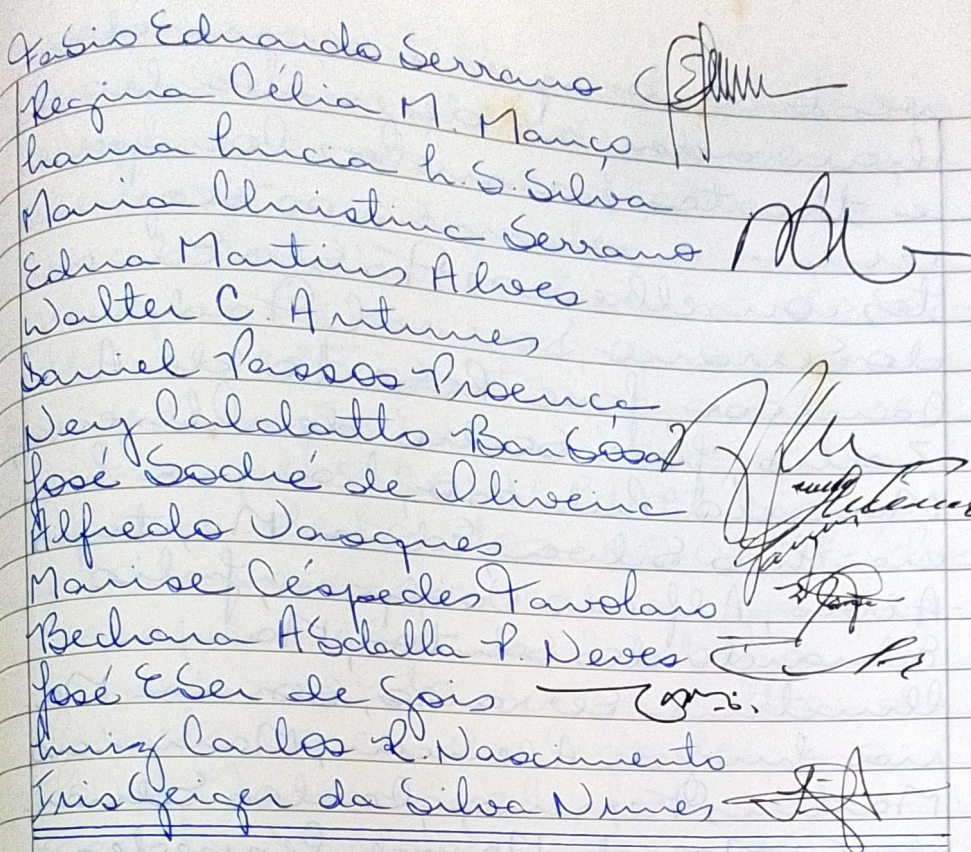 Fabio Eduardo Serrano
Regina Célia M. Manço
Laura Lucia L. S. Silva
Maria Christina Serrano
Edna Martins Alves
Walter C. Antunes
Daniel Passos Proença
Ney Caldatto Barbosa
José Sodré de Oliveira
Alfredo Vasques
Marise Céspedes Tavolaro
Bechara Abdalla P. Neves
José Eber de Gois
Luiz Carlos R. Nascimento
Iris Geiger da Silva Nunes